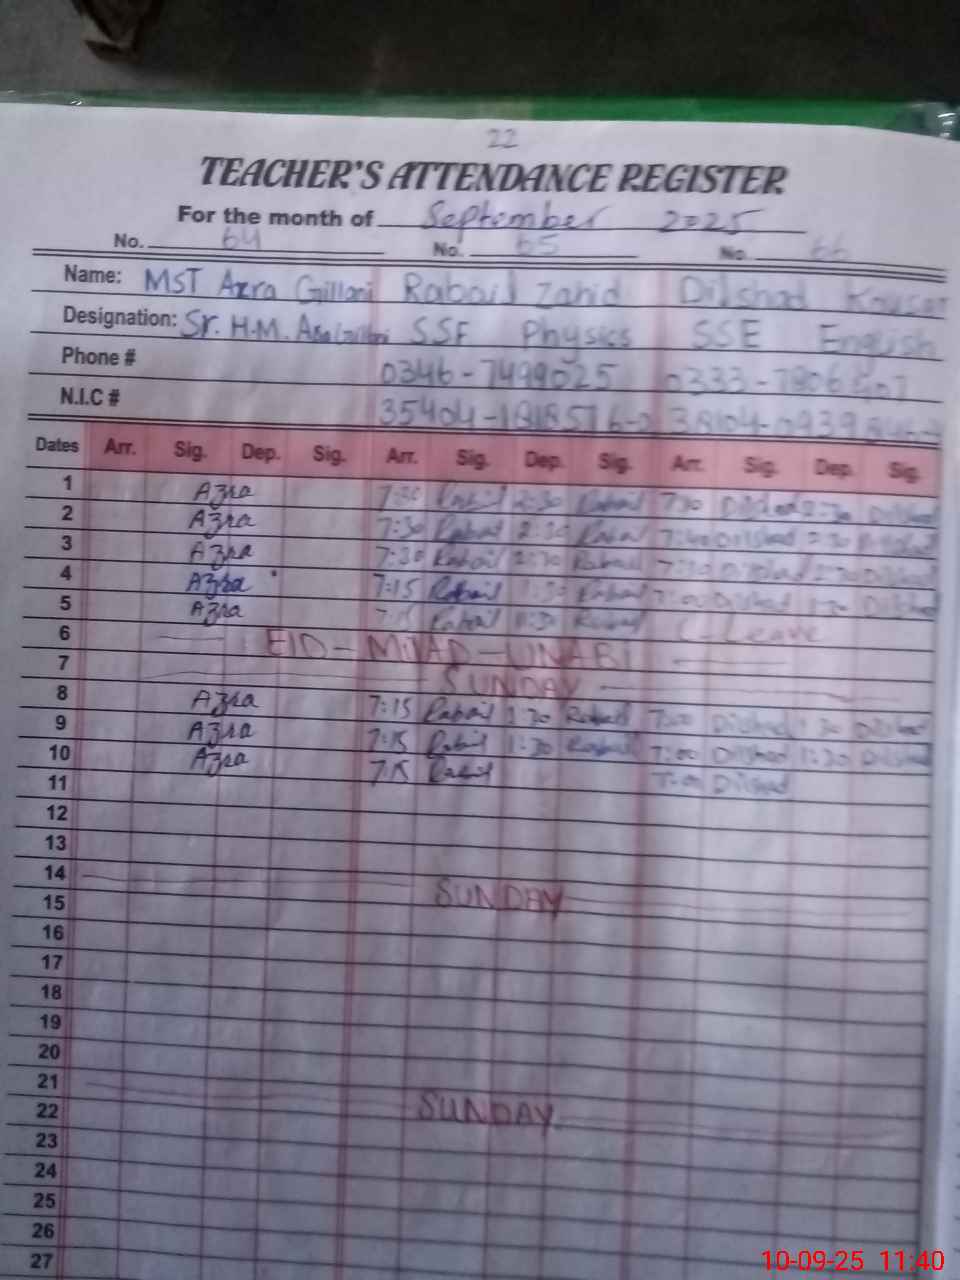 22
TEACHER'S ATTENDANCE REGISTER
For the month of September 2025
No. 64 No. 65 No. 66
Name: MST Azra Gillani Rabail Zahid Dilshad Kousar
Designation: Sr. H.M. SSE Physics SSE English
Phone # 0346-7499025 0333-
N.I.C #
Dates Arr. Sig. Dep. Sig. Arr. Sig. Dep. Sig. Arr. Sig. Dep. Sig.
1 Azra 7:30 Rabail 2:30 Rabail 7:30 Dilshad 2:30 Dilshad
2 Azra 7:30 Rabail 2:30 Rabail Dilshad 2:30
3 Azra 7:30 Rabail 2:30 Rabail 2:30 Dilshad
4 Azra 7:15 Rabail 1:30 Rabail 7:00 Dilshad Dilshad
5 Azra 7:15 Rabail Rabail C-Leave
6 EID-MILAD-UNABI
7 SUNDAY
8 Azra 7:15 Rabail 1:30 Rabail 7:00 Dilshad 1:30 Dilshad
9 Azra 7:15 Rabail 1:30 Rabail 7:00 Dilshad 1:30 Dilshad
10 Azra 7:15 Rabail 7:00 Dilshad
11
12
13
14 SUNDAY
15
16
17
18
19
20
21 SUNDAY
22
23
24
25
26
27
10-09-25 11:40